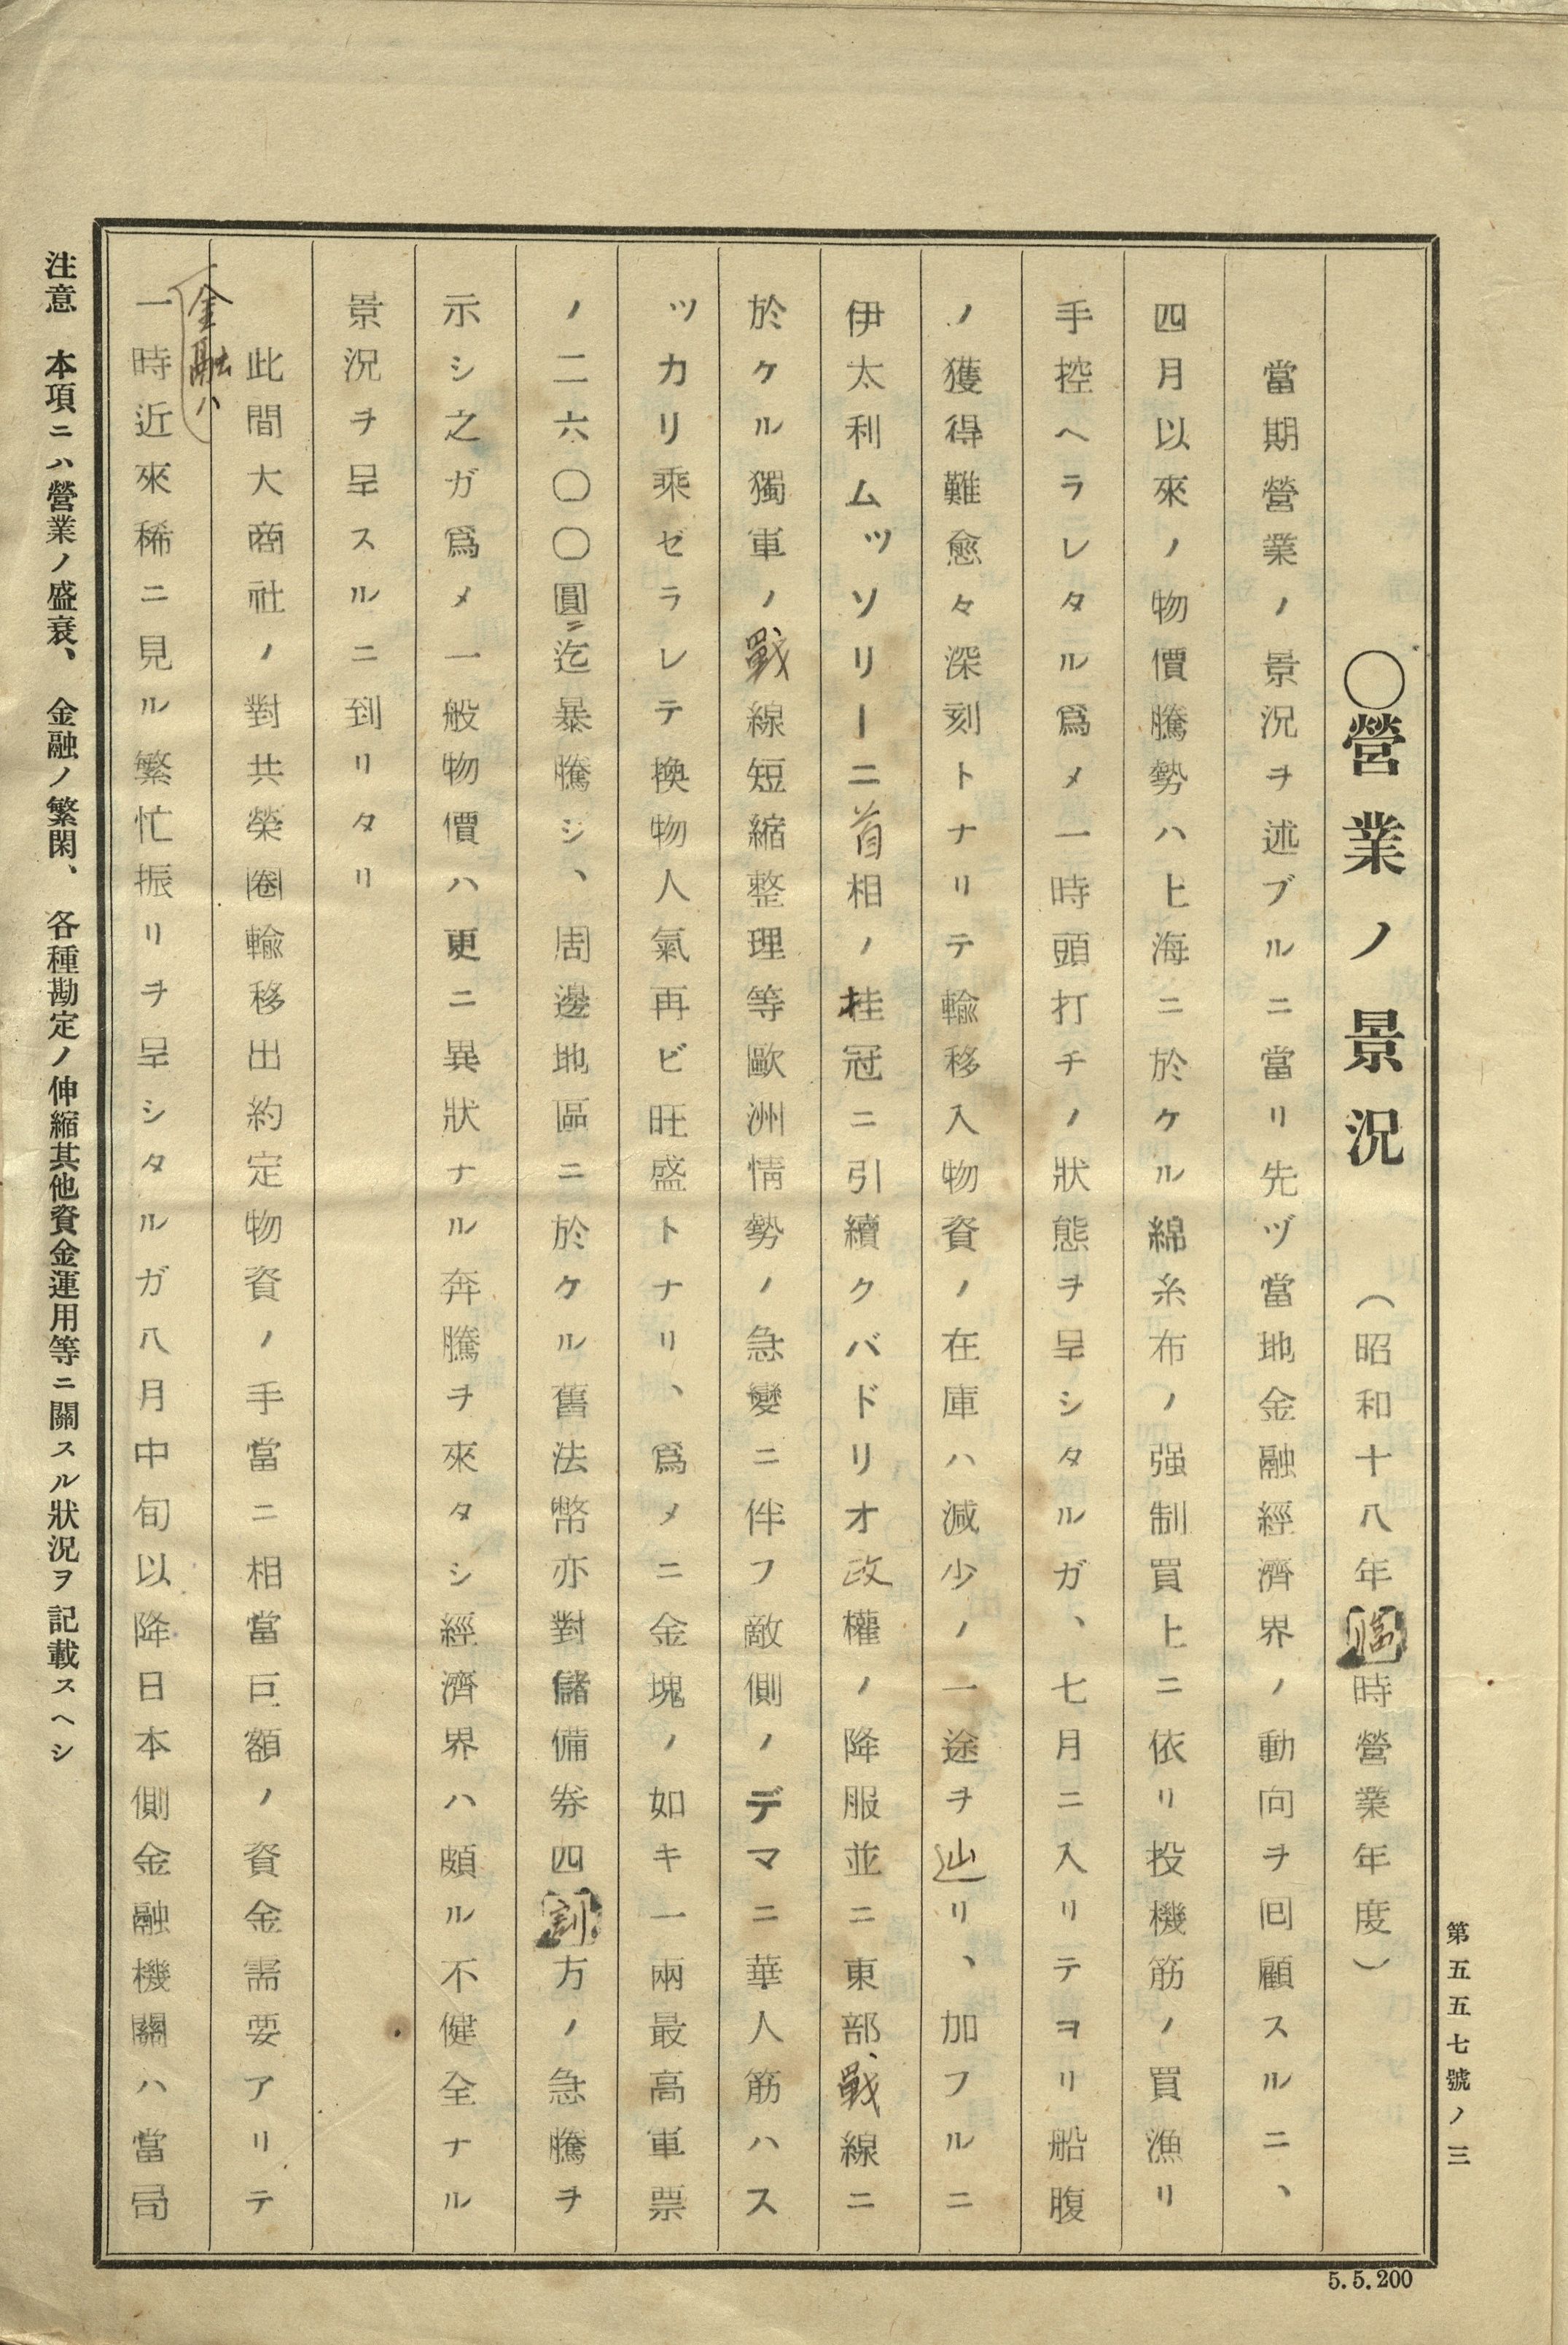 第五五七號ノ三
〇營業ノ景況 (昭和十八年臨時營業年度)
當期營業ノ景況ヲ述ブルニ當リ先ヅ當地金融經濟界ノ動向ヲ囘顧スルニ、
四月以來ノ物價騰勢ハ上海ニ於ケル綿糸布ノ强制買上ニ依リ投機筋ノ買漁リ
手控ヘラレタル爲メ一時頭打チノ狀態ヲ呈シタルガ、七月ニ入リテヨリ船腹
ノ獲得難愈々深刻トナリテ輸移入物資ノ在庫ハ減少ノ一途ヲ辿リ、加フルニ
伊太利ムッソリーニ首相ノ桂冠ニ引續クバドリオ政權ノ降服並ニ東部戰線ニ
於ケル獨軍ノ戰線短縮整理等歐洲情勢ノ急變ニ伴フ敵側ノデマニ華人筋ハス
ッカリ乘ゼラレテ換物人氣再ビ旺盛トナリ、爲メニ金塊ノ如キ一兩最高軍票
ノ二六〇〇圓ニ迄暴騰シ、周邊地區ニ於ケル舊法幣亦對儲備券四割方ノ急騰ヲ
示シ之ガ爲メ一般物價ハ更ニ異狀ナル奔騰ヲ來タシ經濟界ハ頗ル不健全ナル
景況ヲ呈スルニ到リタリ
此間大商社ノ對共榮圈輸移出約定物資ノ手當ニ相當巨額ノ資金需要アリテ
金融ハ
一時近來稀ニ見ル繁忙振リヲ呈シタルガ八月中旬以降日本側金融機關ハ當局
注意 本項ニハ營業ノ盛衰、金融ノ繁閑、各種勘定ノ伸縮其他資金運用等ニ關スル狀況ヲ記載スヘシ
5.5.200